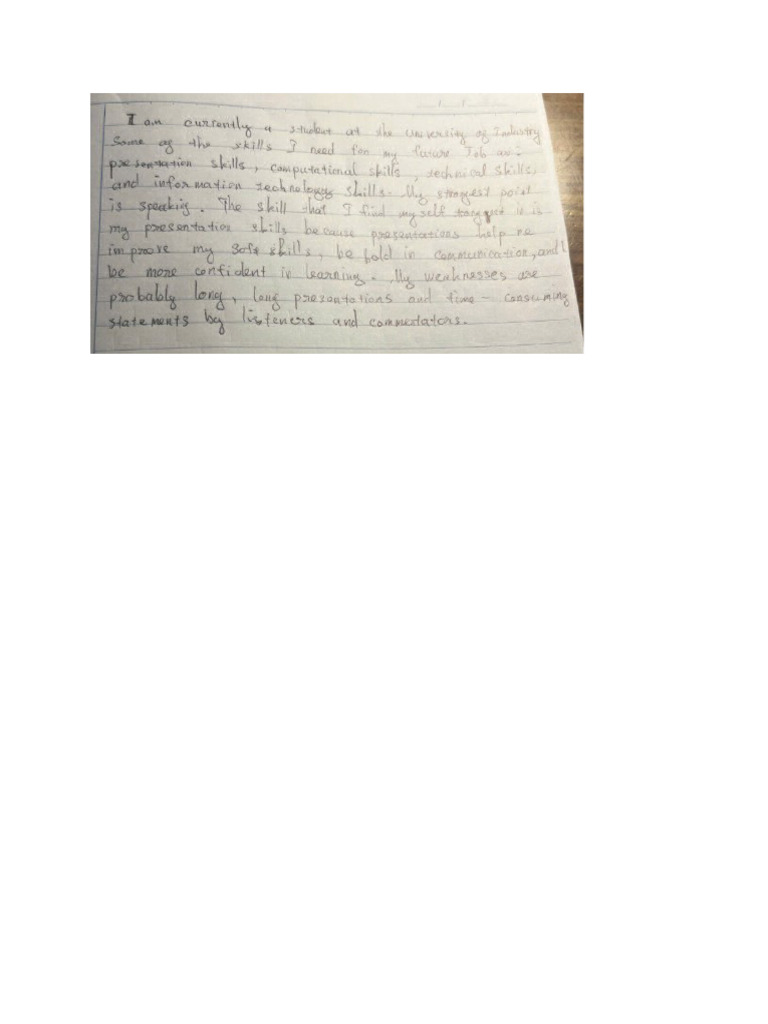 I am currently a student at the University of Industry
Some of the skills I need for my future Job are:
presentation skills, computational skills, technical skills,
and information technology skills. My strongest point
is speaking. The skill that I find myself it is
my presentation skills because presentations help me
improve my soft skills, be bold in communication, and
be more confident in learning. My weaknesses are
probably long, long presentations and time - consuming
statements by listeners and commentators.